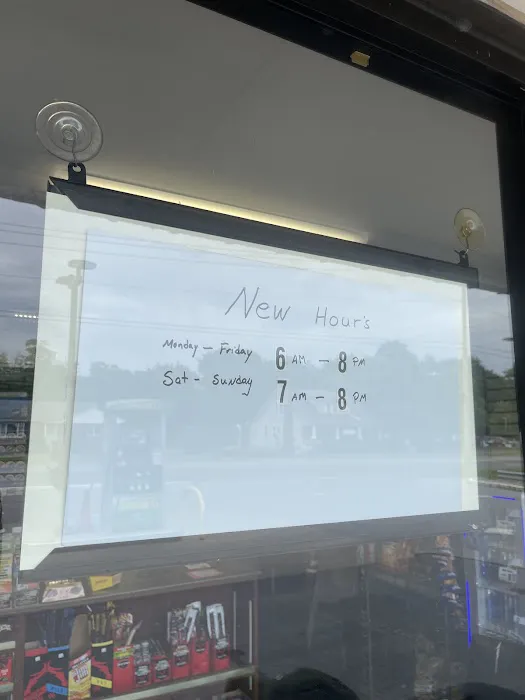 New Hour's
Monday - Friday 6 AM - 8 PM
Sat - Sunday 7 AM - 8 PM